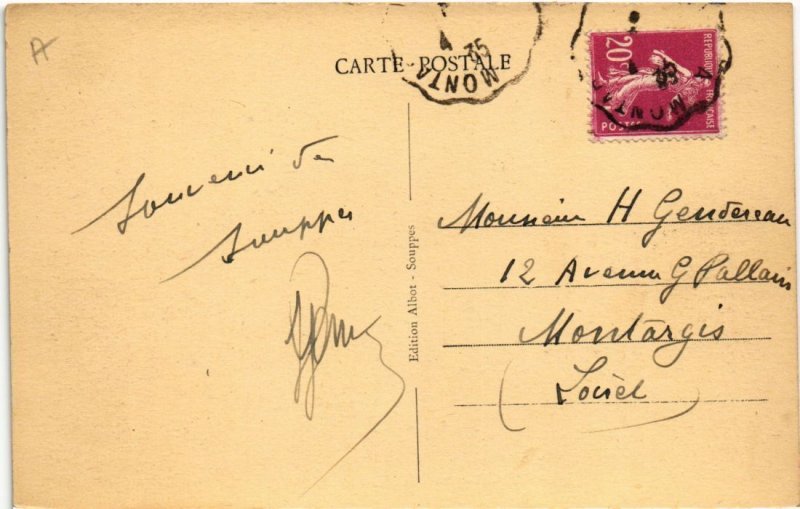 A
CARTE POSTALE
MONTA
4
35
20c
REPUBLIQUE FRANÇAISE
POSTES
A MONTAR
35
Souvenir de
Souppes
Edition Albot - Souppes
Monsieur H Gendereau
12 Avenue G Pallain
Montargis
(Loiret)